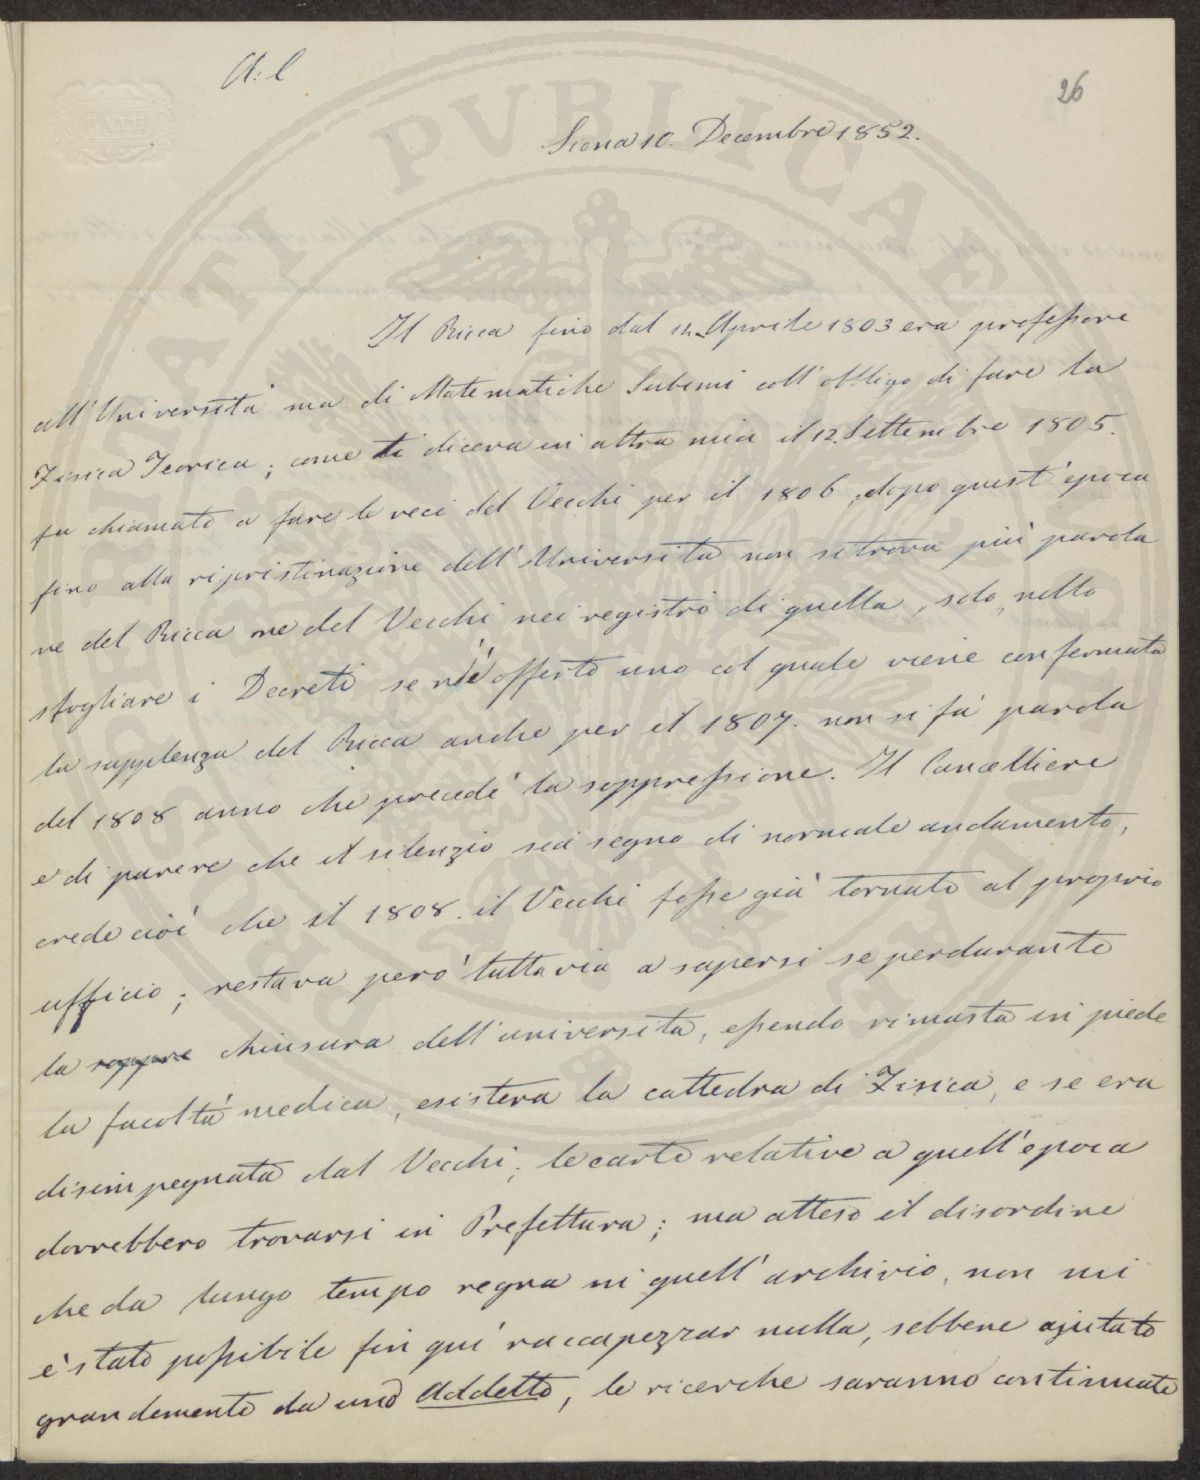 A: C
26
Siena 10. Decembre 1852.
Il Ricca fino dal 14 Aprile 1803 era professore
all'Università ma di Matematiche Sublimi coll'obbligo di fare la
Fisica Teorica; come ti diceva in altra mia il 12. Settembre 1805.
fu chiamato a fare le veci del Vecchi per il 1806, dopo quest'epoca
fino alla ripristinazione dell'Università non si trova più parola
ne del Ricca ne del Vecchi nei registri di quella, solo, nello
sfogliare i Decreti se n'è offerto uno col quale viene confermata
la supplenza del Ricca anche per il 1807. non si fà parola
del 1808 anno che precedè la soppressione. Il Cancelliere
è di parere che il silenzio sia segno di normale andamento,
crede cioè che il 1808. il Vecchi fosse già tornato al proprio
ufficio; restava però tuttavia a sapersi se perdurante
la soppre chiusura dell'università, essendo rimasta in piede
la facoltà medica, esisteva la cattedra di Fisica, e se era
disimpegnata dal Vecchi; le carte relative a quell'epoca
dovrebbero trovarsi in Prefettura; ma atteso il disordine
che da lungo tempo regna in quell'archivio, non mi
è stato possibile fin qui raccapezzar nulla, sebbene ajutato
grandemente da uno Addetto, le ricerche saranno continuate